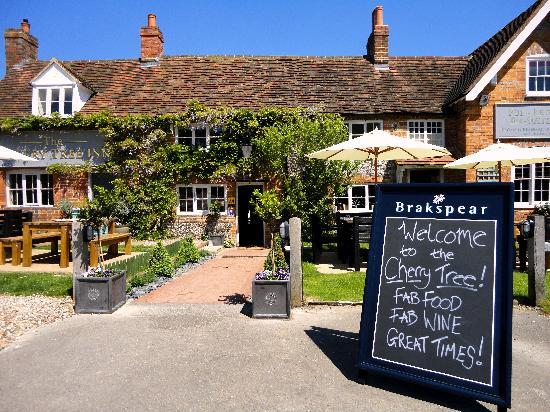 The
TREE INN
Brakspear
Welcome
to the
Cherry Tree!
FAB FOOD
FAB WINE
GREAT TIMES!